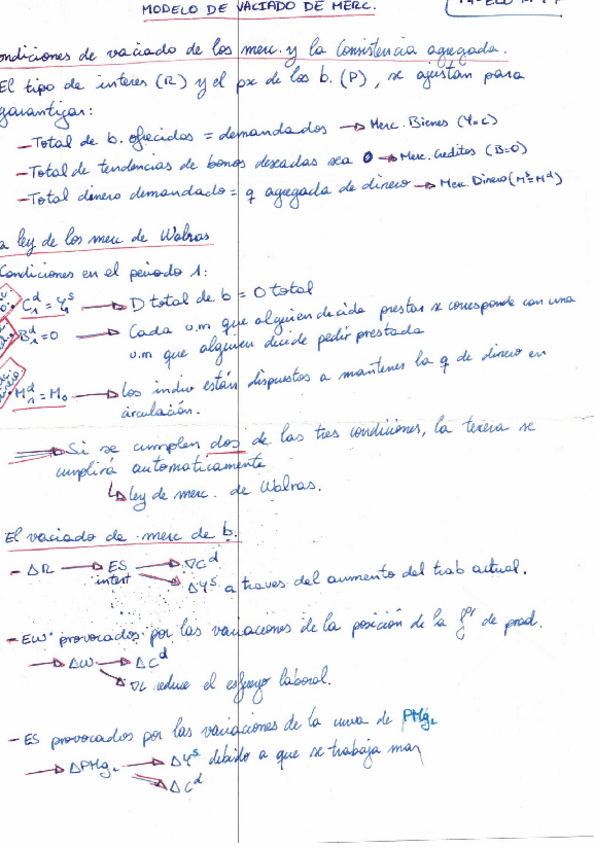 MODELO DE VACIADO DE MERC.
ondiciones de vaciado de los merc. y la Consistencia agregada.
El tipo de interes (R) y el px de los b. (P), se ajustan para
garantizar:
- Total de b. ofrecidos = demandados → Merc. Bienes (Y=C)
- Total de tendencias de bonos deseadas sea 0 → Merc. Creditos (B=0)
- Total dinero demandado = q agregada de dinero → Merc. Dinero (Mˢ=Mᵈ)
a ley de los merc de Walras
Condiciones en el periodo 1:
C₁ᵈ = Y₁ˢ → D total de b = O total
B₁ᵈ = 0 → Cada u.m que alguien decida prestar se corresponde con una
u.m que alguien decide pedir prestada
M₁ᵈ = M₀ → Los indiv están dispuestos a mantener la q de dinero en
circulación.
⇒ Si se cumplen dos de las tres condiciones, la tercera se
cumplirá automáticamente
↳ ley de merc. de Walras.
El vaciado de merc de b.
- ΔR → ES → ∇Cᵈ
intert → ΔYˢ a traves del aumento del trab actual.
- EW provocados por las variaciones de la posición de la fᵒⁿ de prod.
→ ΔW → ΔCᵈ
∇L reduce el esfuerzo laboral.
- ES provocados por las variaciones de la curva de PMgL
→ ΔPMgL → ΔYˢ debido a que se trabaja mas
→ ΔCᵈ